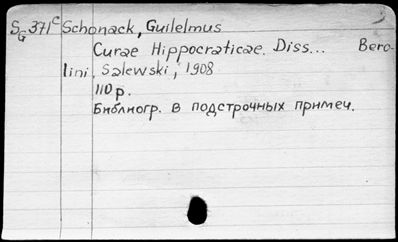 SG 371c Schonack, Guilelmus
Curae Hippocraticae. Diss... Bero-
lini, Salewski, 1908
110 p.
Библиогр. в подстрочных примеч.